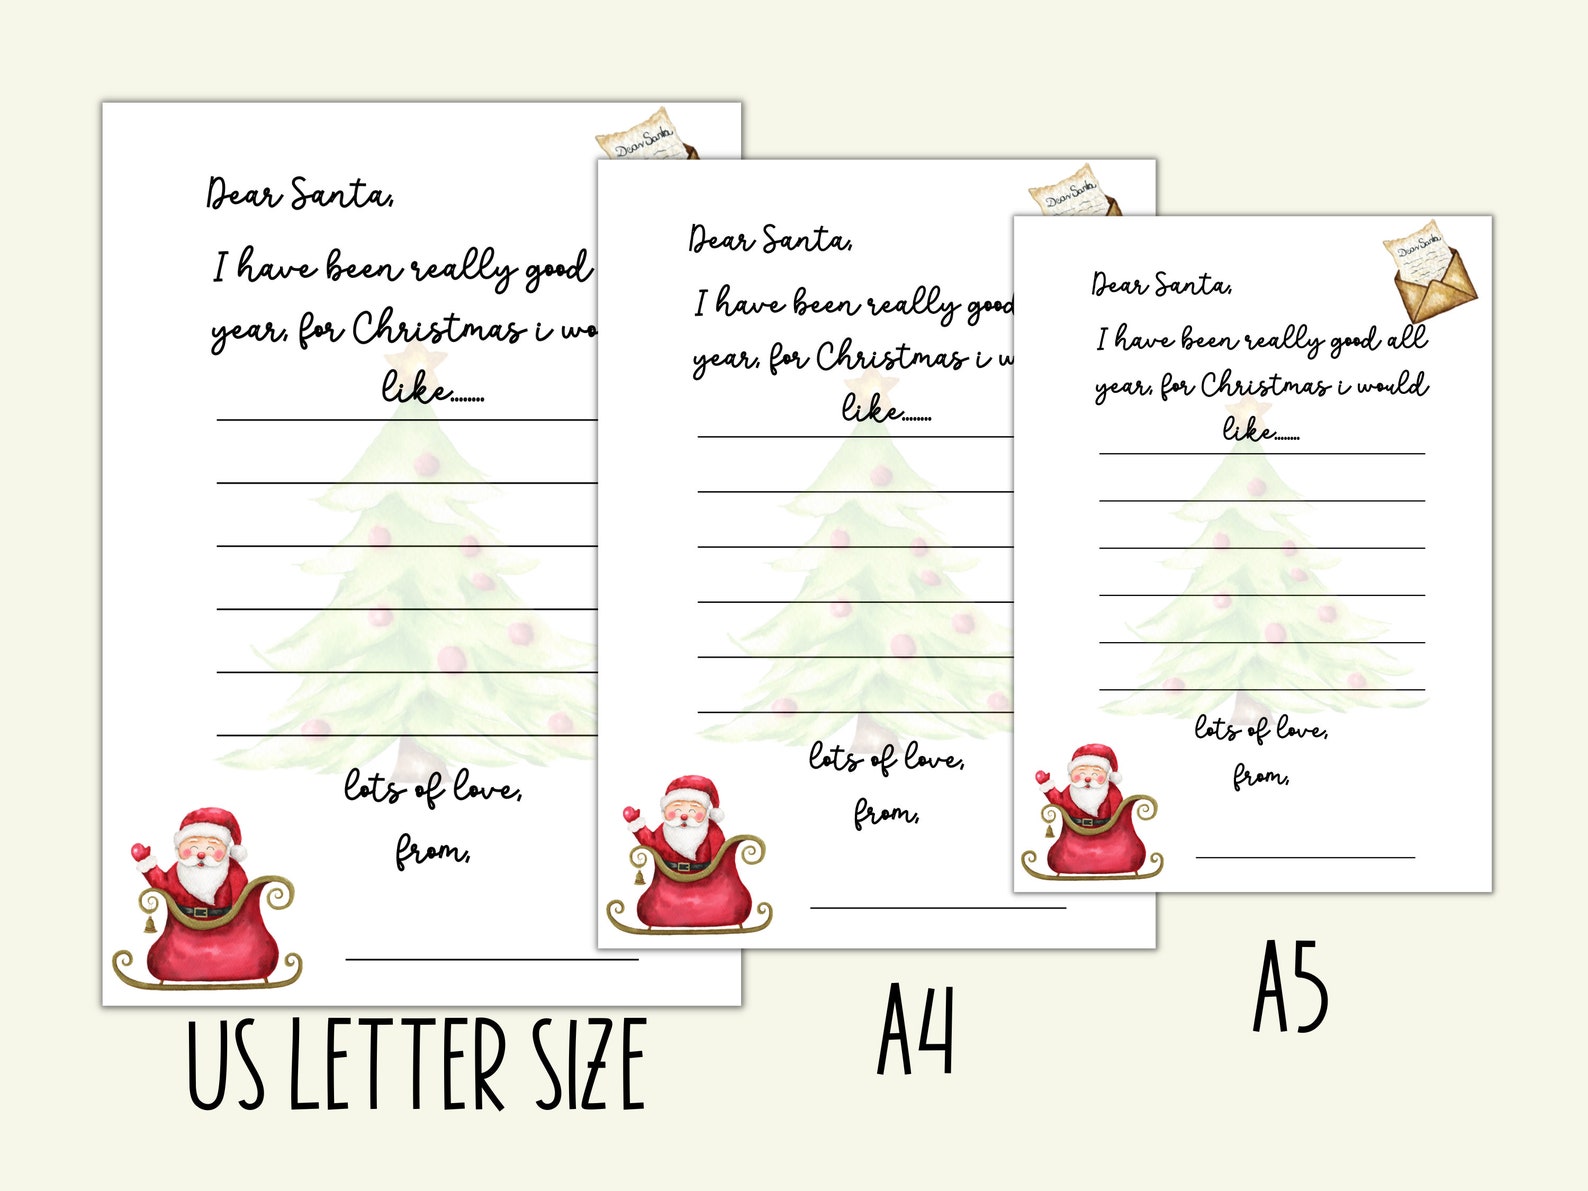 Dear Santa
Dear Santa,
I have been really good
year, for Christmas i wo
like........
lots of love,
from,
US LETTER SIZE
Dear Santa
Dear Santa,
I have been really good
year, for Christmas i w
like........
lots of love,
from,
A4
Dear Santa
Dear Santa,
I have been really good all
year, for Christmas i would
like........
lots of love,
from,
A5